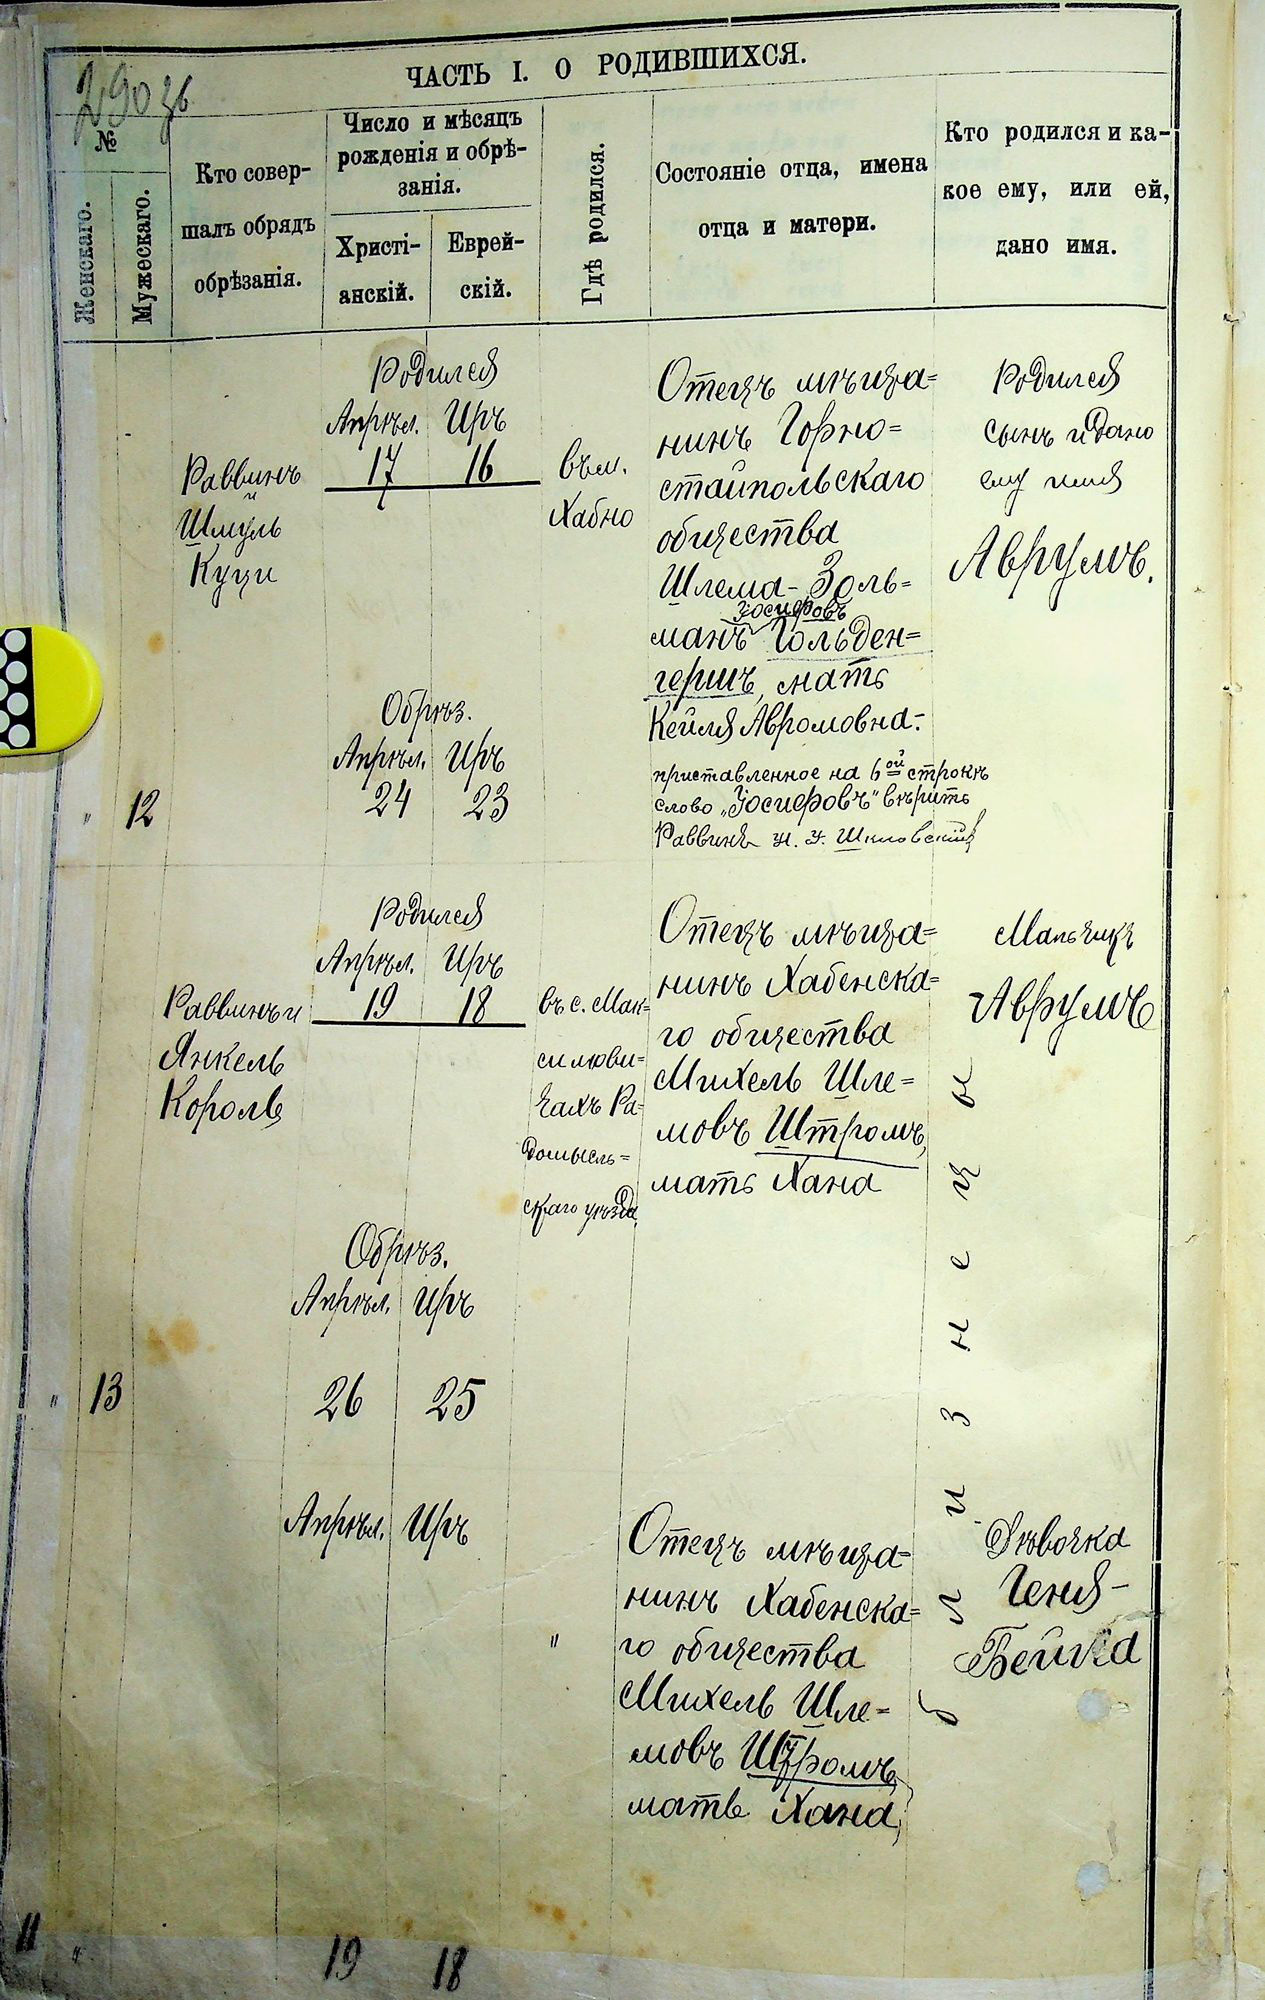 ЧАСТЬ I. О РОДИВШИХСЯ.
290 зв
№
Женскаго.
Мужескаго.
Кто совер-
шалъ обрядъ
обрѣзанія.
Число и мѣсяцъ
рожденія и обрѣ-
занія.
Христі-
анскій.
Еврей-
скій.
Гдѣ родился.
Состояніе отца, имена
отца и матери.
Кто родился и ка-
кое ему, или ей,
дано имя.
" 12
Раввинъ
и
Шмуль
Куци
Родился
Апрѣл. Иръ
17 16
Обрѣз.
Апрѣл. Иръ
24 23
въ м.
Хабно
Отецъ мѣща=
нинъ Горно=
стайпольскаго
общества
Шлема-Золь=
Іосифовъ
манъ Гольден=
гершъ, мать
Кейля Авромовна.-
приставленное на 6ой строкѣ
слово „Іосифовъ" вѣрить
Раввинъ Шкловскій
Родился
сынъ и дано
ему имя
Аврумъ.
" 13
Раввинъ и
Янкель
Король
Родился
Апрѣл. Иръ
19 18
Обрѣз.
Апрѣл. Иръ
26 25
въ с. Мак=
симови=
чахъ Ра=
домысль=
скаго уѣзда,
Отецъ мѣща=
нинъ Хабенска=
го общества
Михель Шле=
мовъ Штромъ,
мать Хана
Мальчикъ
Аврумъ
близнецы
11 "
Апрѣл. Иръ
19 18
"
Отецъ мѣща=
нинъ Хабенска=
го общества
Михель Шле=
мовъ Штромъ,
мать Хана,
Дѣвочка
Геня-
Бейла